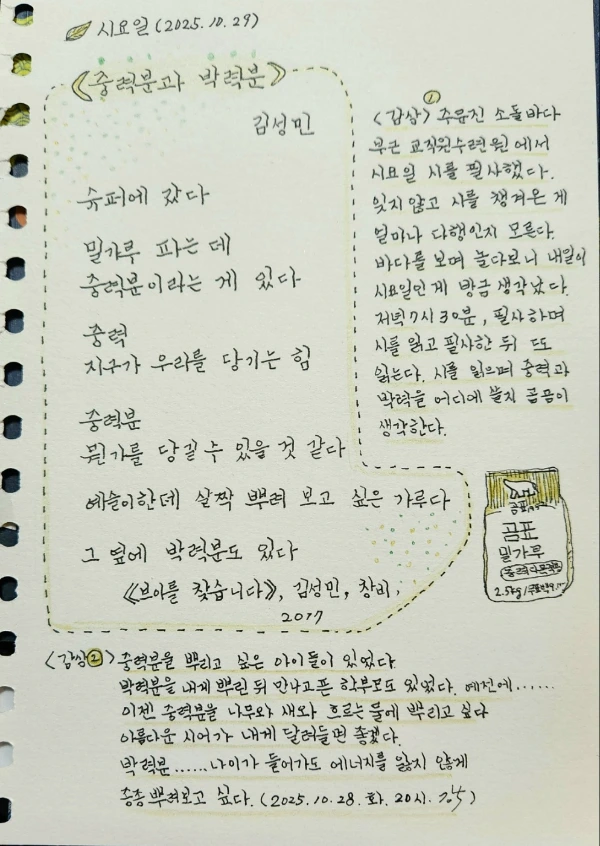 시요일 (2025.10.29)
《중력분과 박력분》
김성민
슈퍼에 갔다
밀가루 파는 데
중력분이라는 게 있다
중력
지구가 우리를 당기는 힘
중력분
뭔가를 당길 수 있을 것 같다
예슬이한데 살짝 뿌려 보고 싶은 가루다
그 옆에 박력분도 있다
《브이를 찾습니다》, 김성민, 창비,
2017
①
<감상> 주문진 소돌바다
부근 교직원수련원에서
시요일 시를 필사했다.
잊지 않고 시를 챙겨온 게
얼마나 다행인지 모른다.
바다를 보며 놀다보니 내일이
시요일인 게 방금 생각났다.
저녁 7시 30분, 필사하며
시를 읽고 필사한 뒤 또
읽는다. 시를 읽으며 중력과
박력을 어디에 쓸지 곰곰이
생각한다.
곰표
곰표
밀가루
중력다목적용
2.5kg/
<감상②> 중력분을 뿌리고 싶은 아이들이 있었다.
박력분을 내게 뿌린 뒤 만나고픈 학부모도 있었다. 예전에......
이젠 중력분을 나무와 새와 흐르는 물에 뿌리고 싶다
아름다운 시어가 내게 달려들면 좋겠다.
박력분......나이가 들어가도 에너지를 잃지 않게
종종 뿌려보고 싶다. (2025.10.28.화. 20시.